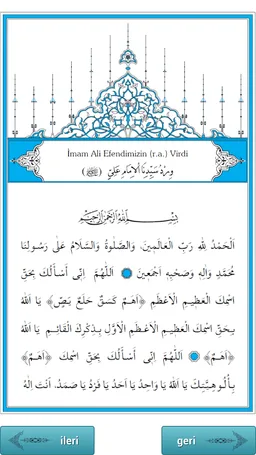 İmam Ali Efendimizin (r.a.) Virdi
وِرْدُ سَيِّدِنَا الْاِمَامِ عَلِيّ
بِسْمِ اللهِ الرَّحْمٰنِ الرَّحِيمِ
اَلْحَمْدُ لِلّٰهِ رَبِّ الْعَالَمِينَ، وَالصَّلٰوةُ وَالسَّلَامُ عَلٰى رَسُولِنَا
مُحَمَّدٍ وَاٰلِهِ وَصَحْبِهِ اَجْمَعِينَ اَللّٰهُمَّ اِنِّى اَسْأَلُكَ بِحَقِّ
اسْمِكَ الْعَظِيمِ الْاَعْظَمِ يَا اَللهُ
بِحَقِّ اسْمِكَ الْعَظِيمِ الْاَعْظَمِ الْاَوَّلِ بِذِكْرِكَ الْقَائِمِ يَا اَللهُ
﴿اَهَمٌ﴾ اَللّٰهُمَّ اِنِّى اَسْأَلُكَ بِحَقِّ اسْمِكَ ﴿اَهَمٌ﴾
بِاُلُوهِيَّتِكَ يَا اَللهُ يَا وَاحِدُ يَا اَحَدُ يَا فَرْدُ يَا صَمَدُ، اَنْتَ اِلٰهُ
ileri
geri